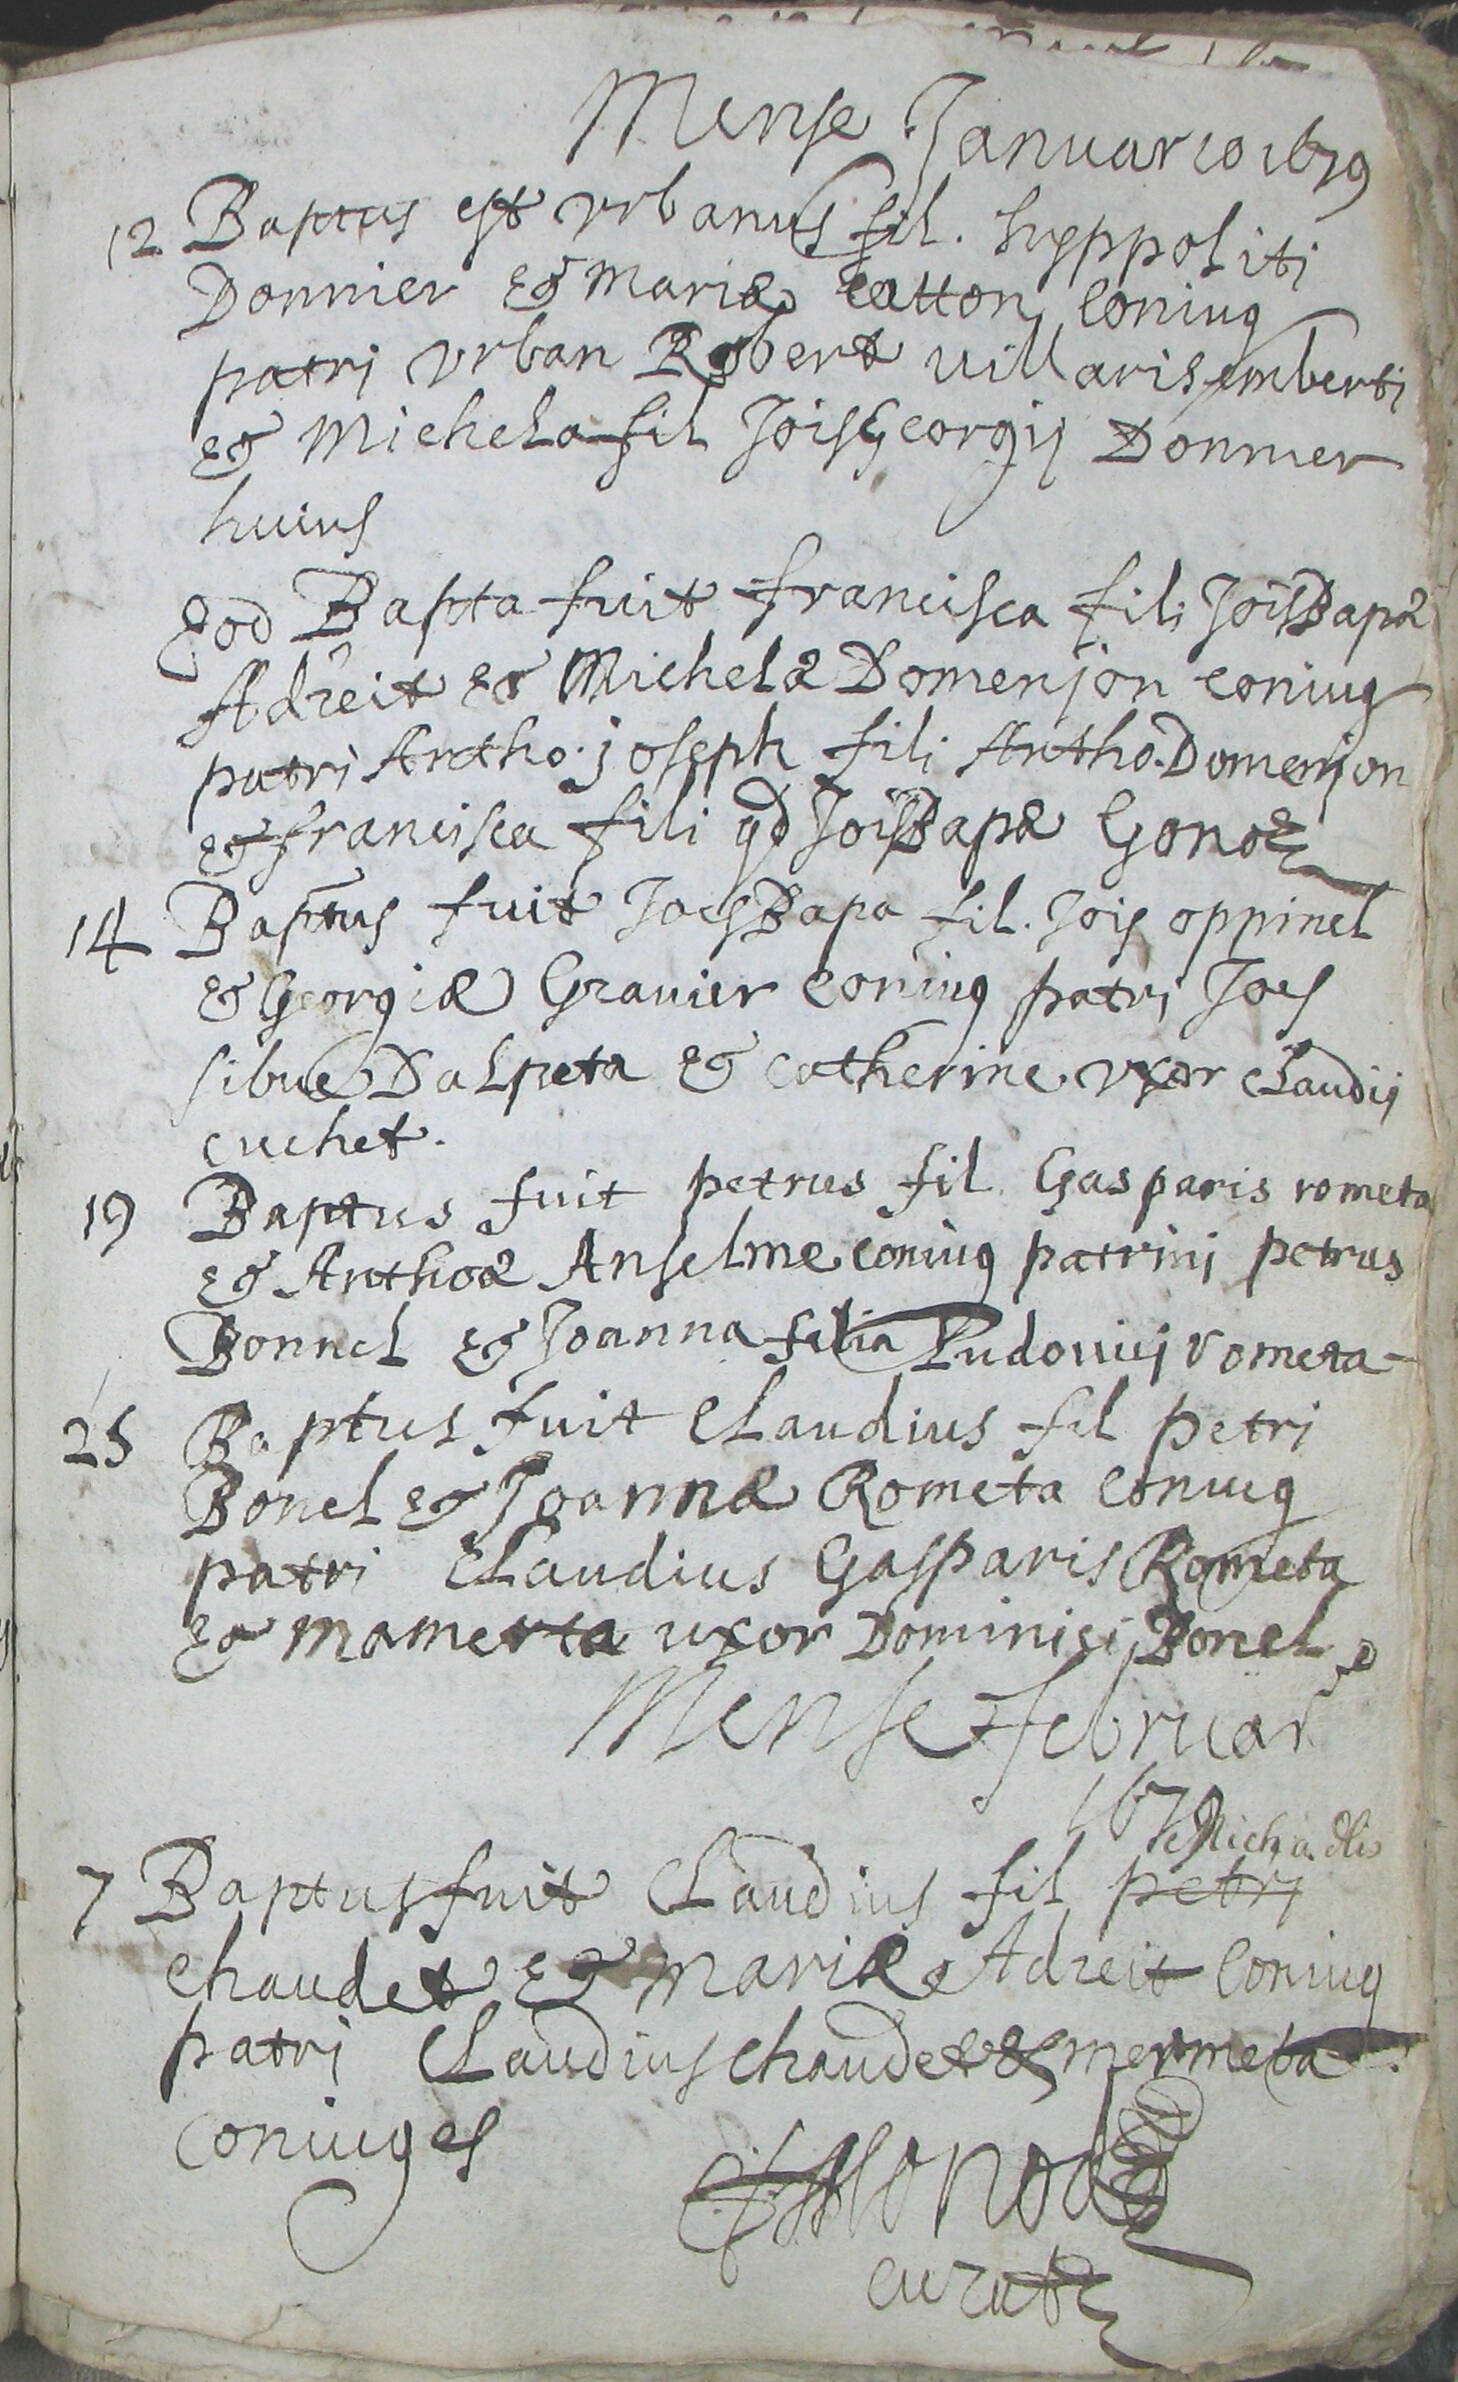 Mense Januario 1679
12 Baptus est vrbanus fil. hyppoliti
Donnier & Mariæ Catton coniug
patri vrban Robert uillarisemberti
& Michela fil Jois Georgij Donnier
huius
Eod Bapta fuit francisca fili Jois Bapæ
Adreit & Michelæ Domenjon coniug
patri Antho. joseph fili Antho. Domenjon
& francisca fili qd Jois Bapæ
14 Baptus fuit Joes Bapa fil. Jois oppinel
& Georgiæ Grauier coniug patri Joes
sibue Dalpeta & catherine vxor claudij
cuchet.
19 Baptus fuit petrus fil Gasparis rometa
& Anthoæ Anselme coniug patrini petrus
Bonnel & Joanna filia Ludouici rometa
25 Baptus fuit Claudius fil petri
Bonel & Joannæ Rometa coniug
patri Claudius Gasparis Rometa
& mamerta uxor Dominici Bonel
Mense februar
1679
Michaelis
7 Baptus fuit Claudius fil petri
chaudet & mariæ Adreit coniug
patri Claudius chaudet & mermeta
coniuges
curate